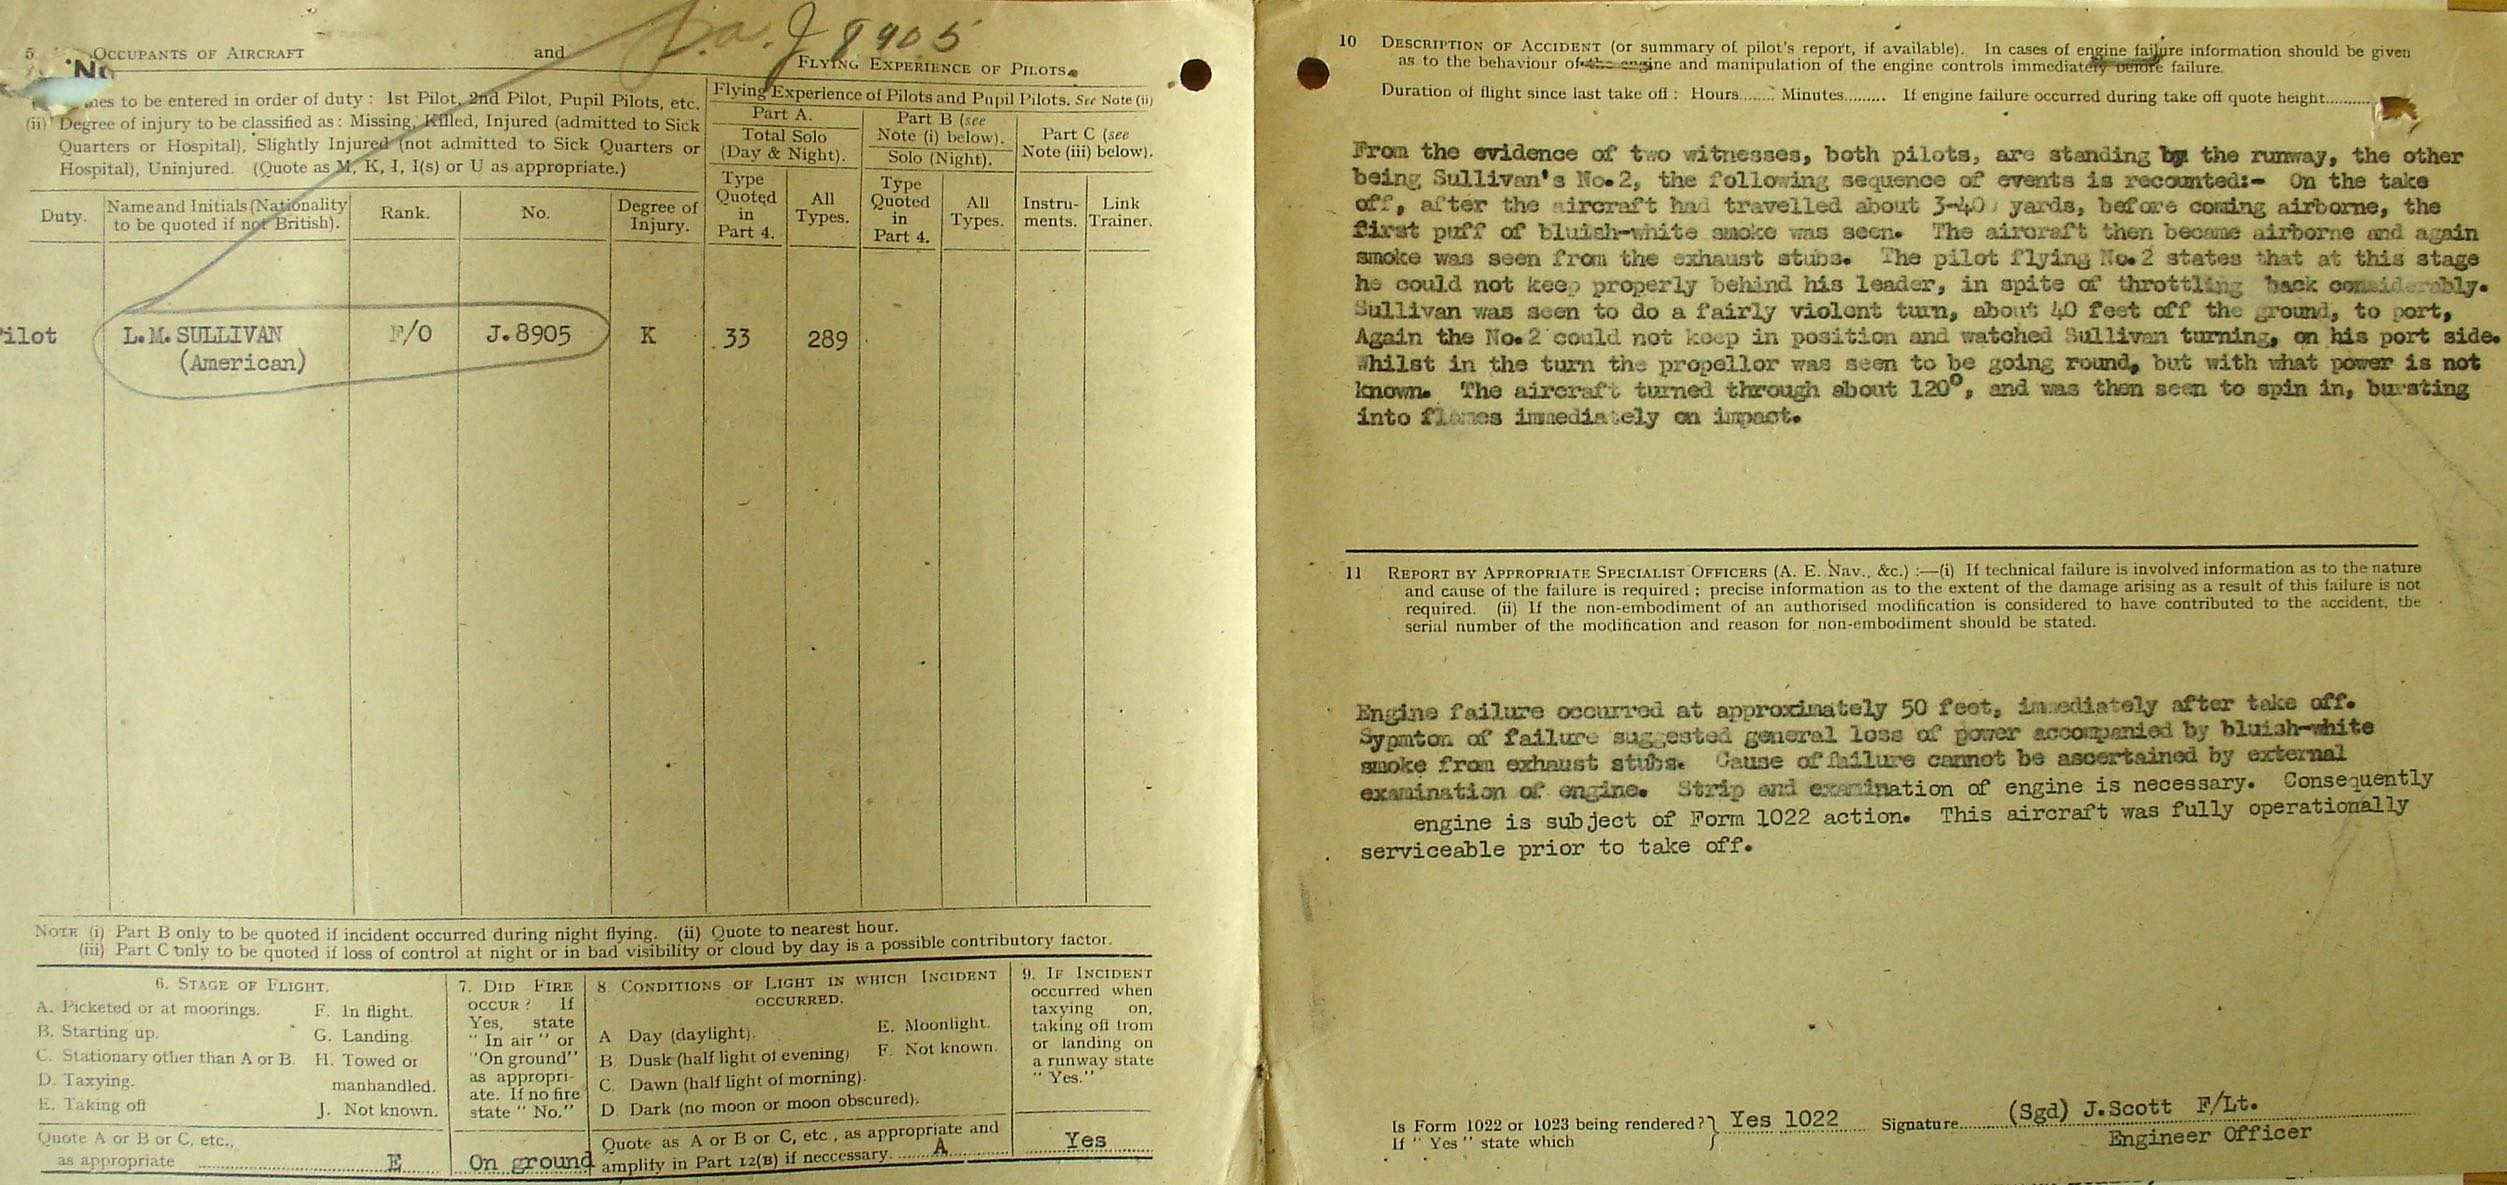 J 8905
5 OCCUPANTS OF AIRCRAFT and FLYING EXPERIENCE OF PILOTS.
No
to be entered in order of duty : 1st Pilot, 2nd Pilot, Pupil Pilots, etc.
(ii) Degree of injury to be classified as : Missing, Killed, Injured (admitted to Sick
Quarters or Hospital), Slightly Injured (not admitted to Sick Quarters or
Hospital), Uninjured. (Quote as M, K, I, I(s) or U as appropriate.)
Flying Experience of Pilots and Pupil Pilots. See Note (ii)
Part A.
Total Solo
(Day & Night).
Part B (see
Note (i) below).
Solo (Night).
Part C (see
Note (iii) below).
Duty.
Name and Initials (Nationality
to be quoted if not British).
Rank.
No.
Degree of
Injury.
Type
Quoted
in
Part 4.
All
Types.
Type
Quoted
in
Part 4.
All
Types.
Instru-
ments.
Link
Trainer.
ilot L.M. SULLIVAN F/O J.8905 K 33 289
(American)
NOTE (i) Part B only to be quoted if incident occurred during night flying. (ii) Quote to nearest hour.
(iii) Part C only to be quoted if loss of control at night or in bad visibility or cloud by day is a possible contributory factor.
6. STAGE OF FLIGHT.
A. Picketed or at moorings. F. In flight.
B. Starting up. G. Landing.
C. Stationary other than A or B. H. Towed or
D. Taxying. manhandled.
E. Taking off J. Not known.
Quote A or B or C, etc.,
as appropriate E
7. DID FIRE
OCCUR ? If
Yes, state
" In air " or
"On ground"
as appropri-
ate. If no fire
state " No."
On ground
8 CONDITIONS OF LIGHT IN WHICH INCIDENT
OCCURRED.
A Day (daylight). E. Moonlight.
B. Dusk (half light of evening) F. Not known.
C. Dawn (half light of morning).
D. Dark (no moon or moon obscured).
Quote as A or B or C, etc., as appropriate and
amplify in Part 12(B) if neccessary. A
9. IF INCIDENT
occurred when
taxying on,
taking off from
or landing on
a runway state
" Yes."
Yes
10 DESCRIPTION OF ACCIDENT (or summary of pilot's report, if available). In cases of engine failure information should be given
as to the behaviour of the engine and manipulation of the engine controls immediately before failure.
Duration of flight since last take off : Hours........ Minutes......... If engine failure occurred during take off quote height..........
From the evidence of two witnesses, both pilots, are standing by the runway, the other
being Sullivan's No.2, the following sequence of events is recounted:- On the take
off, after the aircraft had travelled about 3-400 yards, before coming airborne, the
first puff of bluish-white smoke was seen. The aircraft then became airborne and again
smoke was seen from the exhaust stubs. The pilot flying No.2 states that at this stage
he could not keep properly behind his leader, in spite of throttling back considerably.
Sullivan was seen to do a fairly violent turn, about 40 feet off the ground, to port,
Again the No.2 could not keep in position and watched Sullivan turning, on his port side.
Whilst in the turn the propellor was seen to be going round, but with what power is not
known. The aircraft turned through about 120°, and was then seen to spin in, bursting
into flames immediately on impact.
11 REPORT BY APPROPRIATE SPECIALIST OFFICERS (A. E. Nav., &c.) :—(i) If technical failure is involved information as to the nature
and cause of the failure is required ; precise information as to the extent of the damage arising as a result of this failure is not
required. (ii) If the non-embodiment of an authorised modification is considered to have contributed to the accident, the
serial number of the modification and reason for non-embodiment should be stated.
Engine failure occurred at approximately 50 feet, immediately after take off.
Sypmton of failure suggested general loss of power accompanied by bluish-white
smoke from exhaust stubs. Cause of failure cannot be ascertained by external
examination of engine. Strip and examination of engine is necessary. Consequently
engine is subject of Form 1022 action. This aircraft was fully operationally
serviceable prior to take off.
Is Form 1022 or 1023 being rendered ? } Yes 1022 Signature (Sgd) J.Scott F/Lt.
If " Yes " state which Engineer Officer